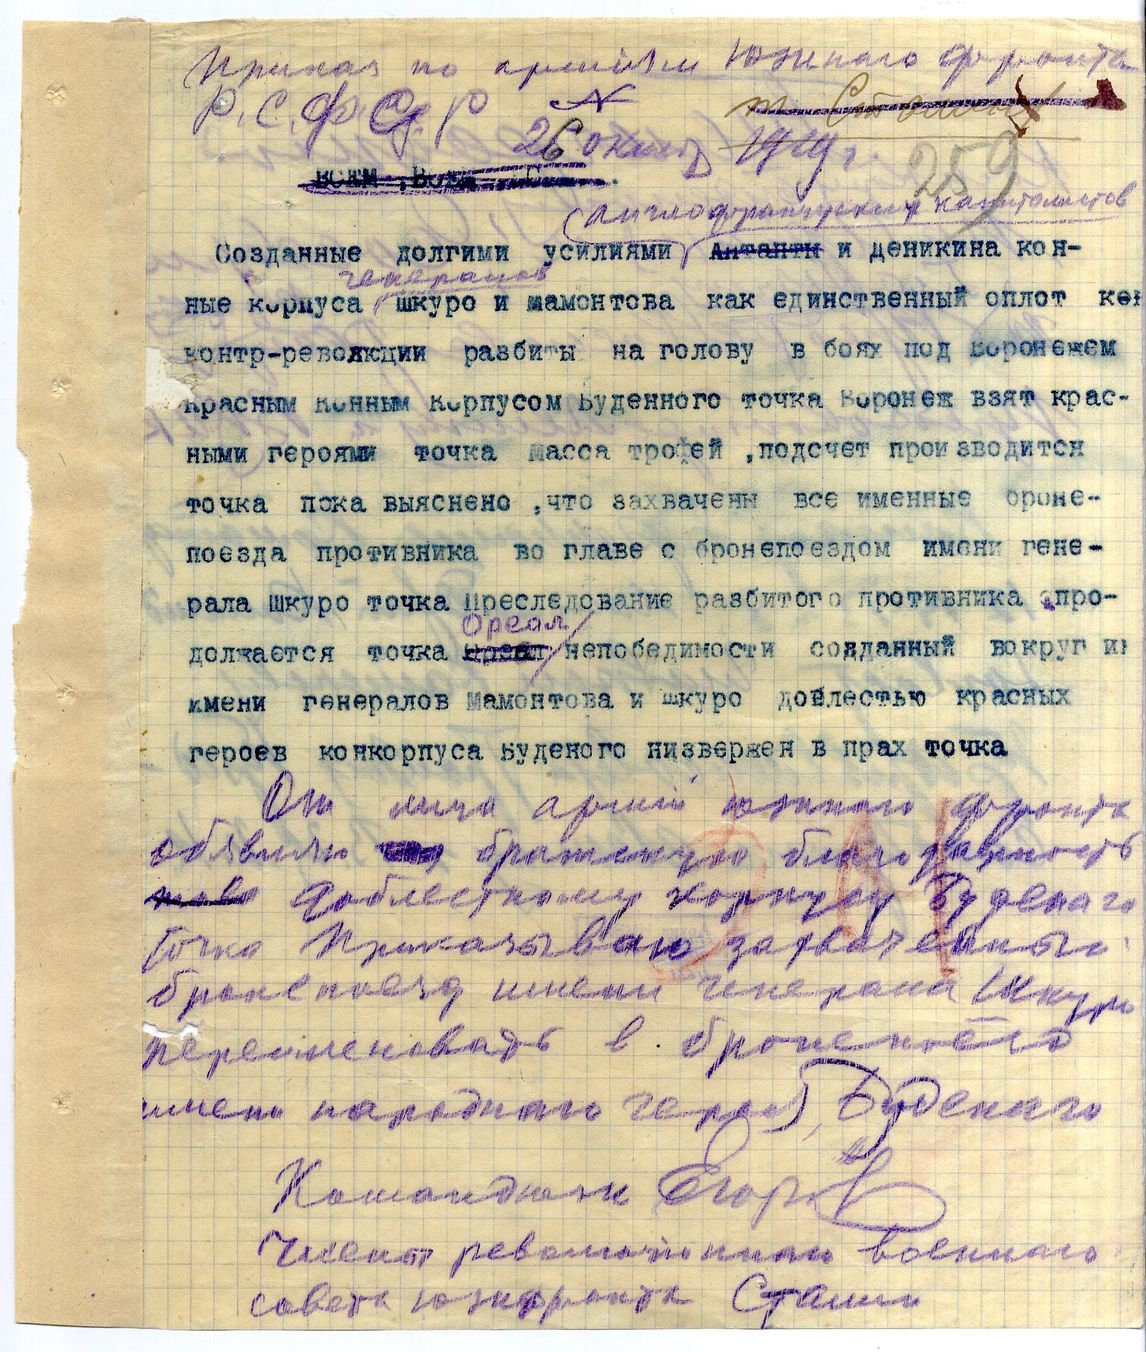 Приказ по армиям Южного фронта
Р.С.Ф.С.Р №
т. Сталин
26 октяб 1919 г.
259
Всем, Всем,
(англофранцузских капиталистов
Созданные долгими усилиями Антанты и Деникина кон-
генералов
ные корпуса Шкуро и Мамонтова как единственный оплот кон
контр-революции разбиты на голову в боях под Воронежем
Красным Конным Корпусом Буденного точка Воронеж взят крас-
ными героями точка Масса трофей ,подсчет производится
точка пока выяснено ,что захвачены все именные броне-
поезда противника во главе с бронепоездом имени гене-
рала Шкуро точка Преследование разбитого противника про-
Ореал
должается точка Ореал непобедимости созданный вокруг и
имени генералов Мамонтова и Шкуро доблестью красных
героев конкорпуса Буденого низвержен в прах точка
От лица армий южного фронта
объявляю братскую благодарность
доблестному корпусу Буденаго
точка Приказываю захваченный
бронепоезд имени генерала Шкуро
переименовать в бронепоезд
имени народнаго героя Буденаго
Командюж Егоров
Член революционнаго военнаго
совета южфронта Сталин